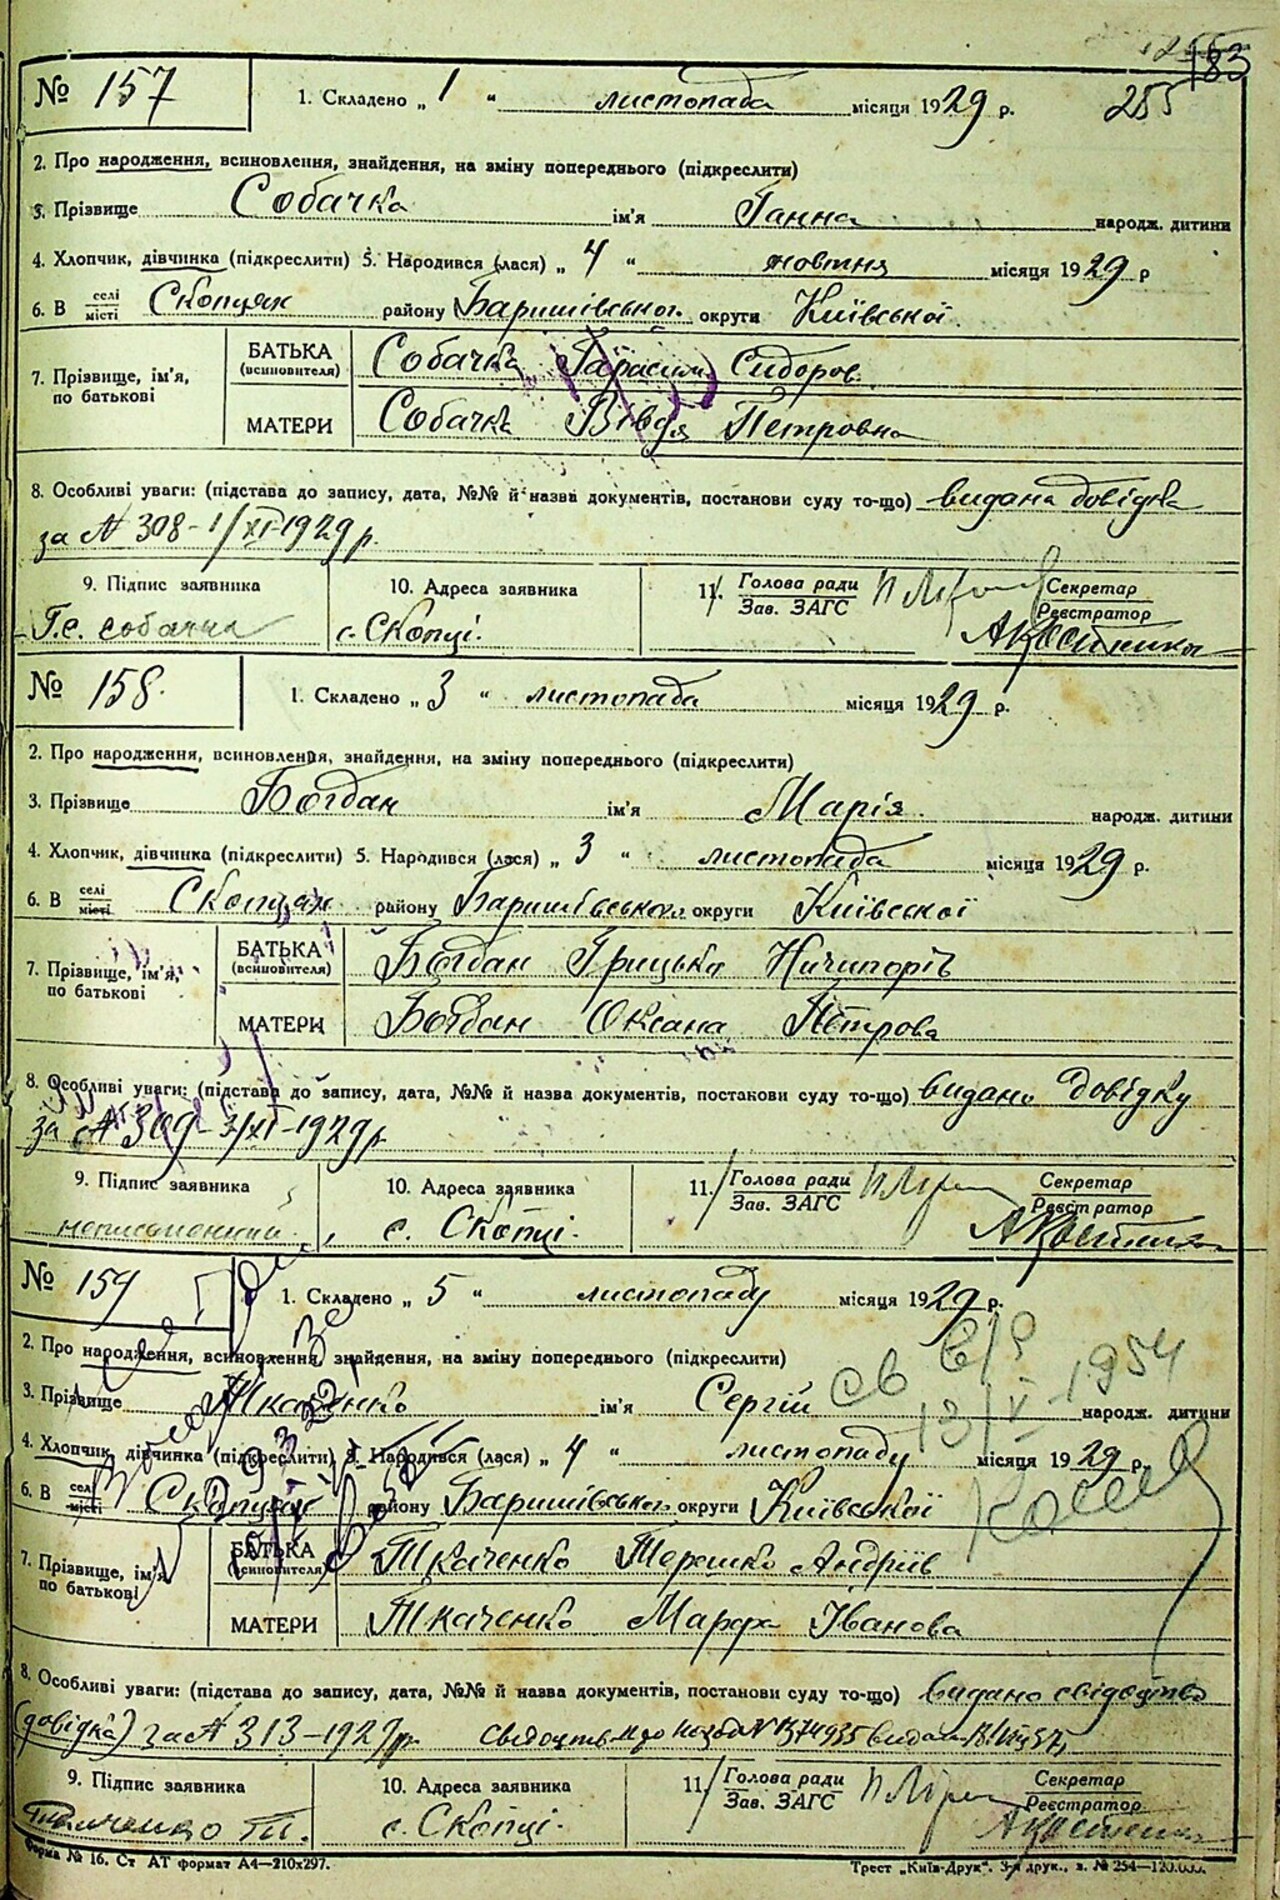 183
255
№ 157
1. Складено „ 1 “ листопада місяця 1929 р.
2. Про народження, всиновлення, знайдення, на зміну попереднього (підкреслити)
3. Прізвище Собачка ім'я Ганна народж. дитини
4. Хлопчик, дівчинка (підкреслити) 5. Народився (лася) „ 4 “ жовтня місяця 1929 р
6. В селі місті Скопцях району Баришівського округи Київської
7. Прізвище, ім'я, по батькові
БАТЬКА (всиновителя) Собачка Гарасим Сидоров
МАТЕРИ Собачка Вівдя Петровна
8. Особливі уваги: (підстава до запису, дата, №№ й назва документів, постанови суду то-що) видана довідка
за № 308 - 1/XI-1929 р.
9. Підпис заявника
Г.С. Собачка
10. Адреса заявника
с. Скопці.
11. Голова ради
Зав. ЗАГС
Секретар
Реєстратор
№ 158.
1. Складено „ 3 “ листопада місяця 1929 р.
2. Про народження, всиновлення, знайдення, на зміну попереднього (підкреслити)
3. Прізвище Богдан ім'я Марія народж. дитини
4. Хлопчик, дівчинка (підкреслити) 5. Народився (лася) „ 3 “ листопада місяця 1929 р.
6. В селі місті Скопцях району Баришівського округи Київської
7. Прізвище, ім'я, по батькові
БАТЬКА (всиновителя) Богдан Грицько Ничипорів
МАТЕРИ Богдан Оксана Петрова
8. Особливі уваги: (підстава до запису, дата, №№ й назва документів, постакови суду то-що) видано довідку
за № 309 - 3/XI-1929 р.
9. Підпис заявника
неписьменний
10. Адреса заявника
с. Скопці.
11. Голова ради
Зав. ЗАГС
Секретар
Реєстратор
№ 159
1. Складено „ 5 “ листопаду місяця 1929 р.
2. Про народження, всиновлення, знайдення, на зміну попереднього (підкреслити)
3. Прізвище Ткаченко ім'я Сергій народж. дитини
св в/р
13/V-1954
4. Хлопчик, дівчинка (підкреслити) 5. Народився (лася) „ 4 “ листопаду місяця 1929 р.
6. В селі місті Скопцях району Баришівського округи Київської
7. Прізвище, ім'я по батькові
БАТЬКА (всиновителя) Ткаченко Терешко Андріїв
МАТЕРИ Ткаченко Марфа Іванова
8. Особливі уваги: (підстава до запису, дата, №№ й назва документів, постанови суду то-що) видано свідоцтво
(довідка) за № 313-1929 р.
9. Підпис заявника
Ткаченко Т.
10. Адреса заявника
с. Скопці.
11. Голова ради
Зав. ЗАГС
Секретар
Реєстратор
Форма № 16. Ст АТ формат А4—210x297.
Трест „Київ-Друк“. 3-я друк., з. № 254—120.000.